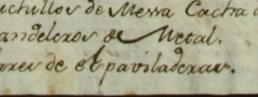 uchillos de Messa Cacha d
andeleros de Metal.
ores de espaviladeras.